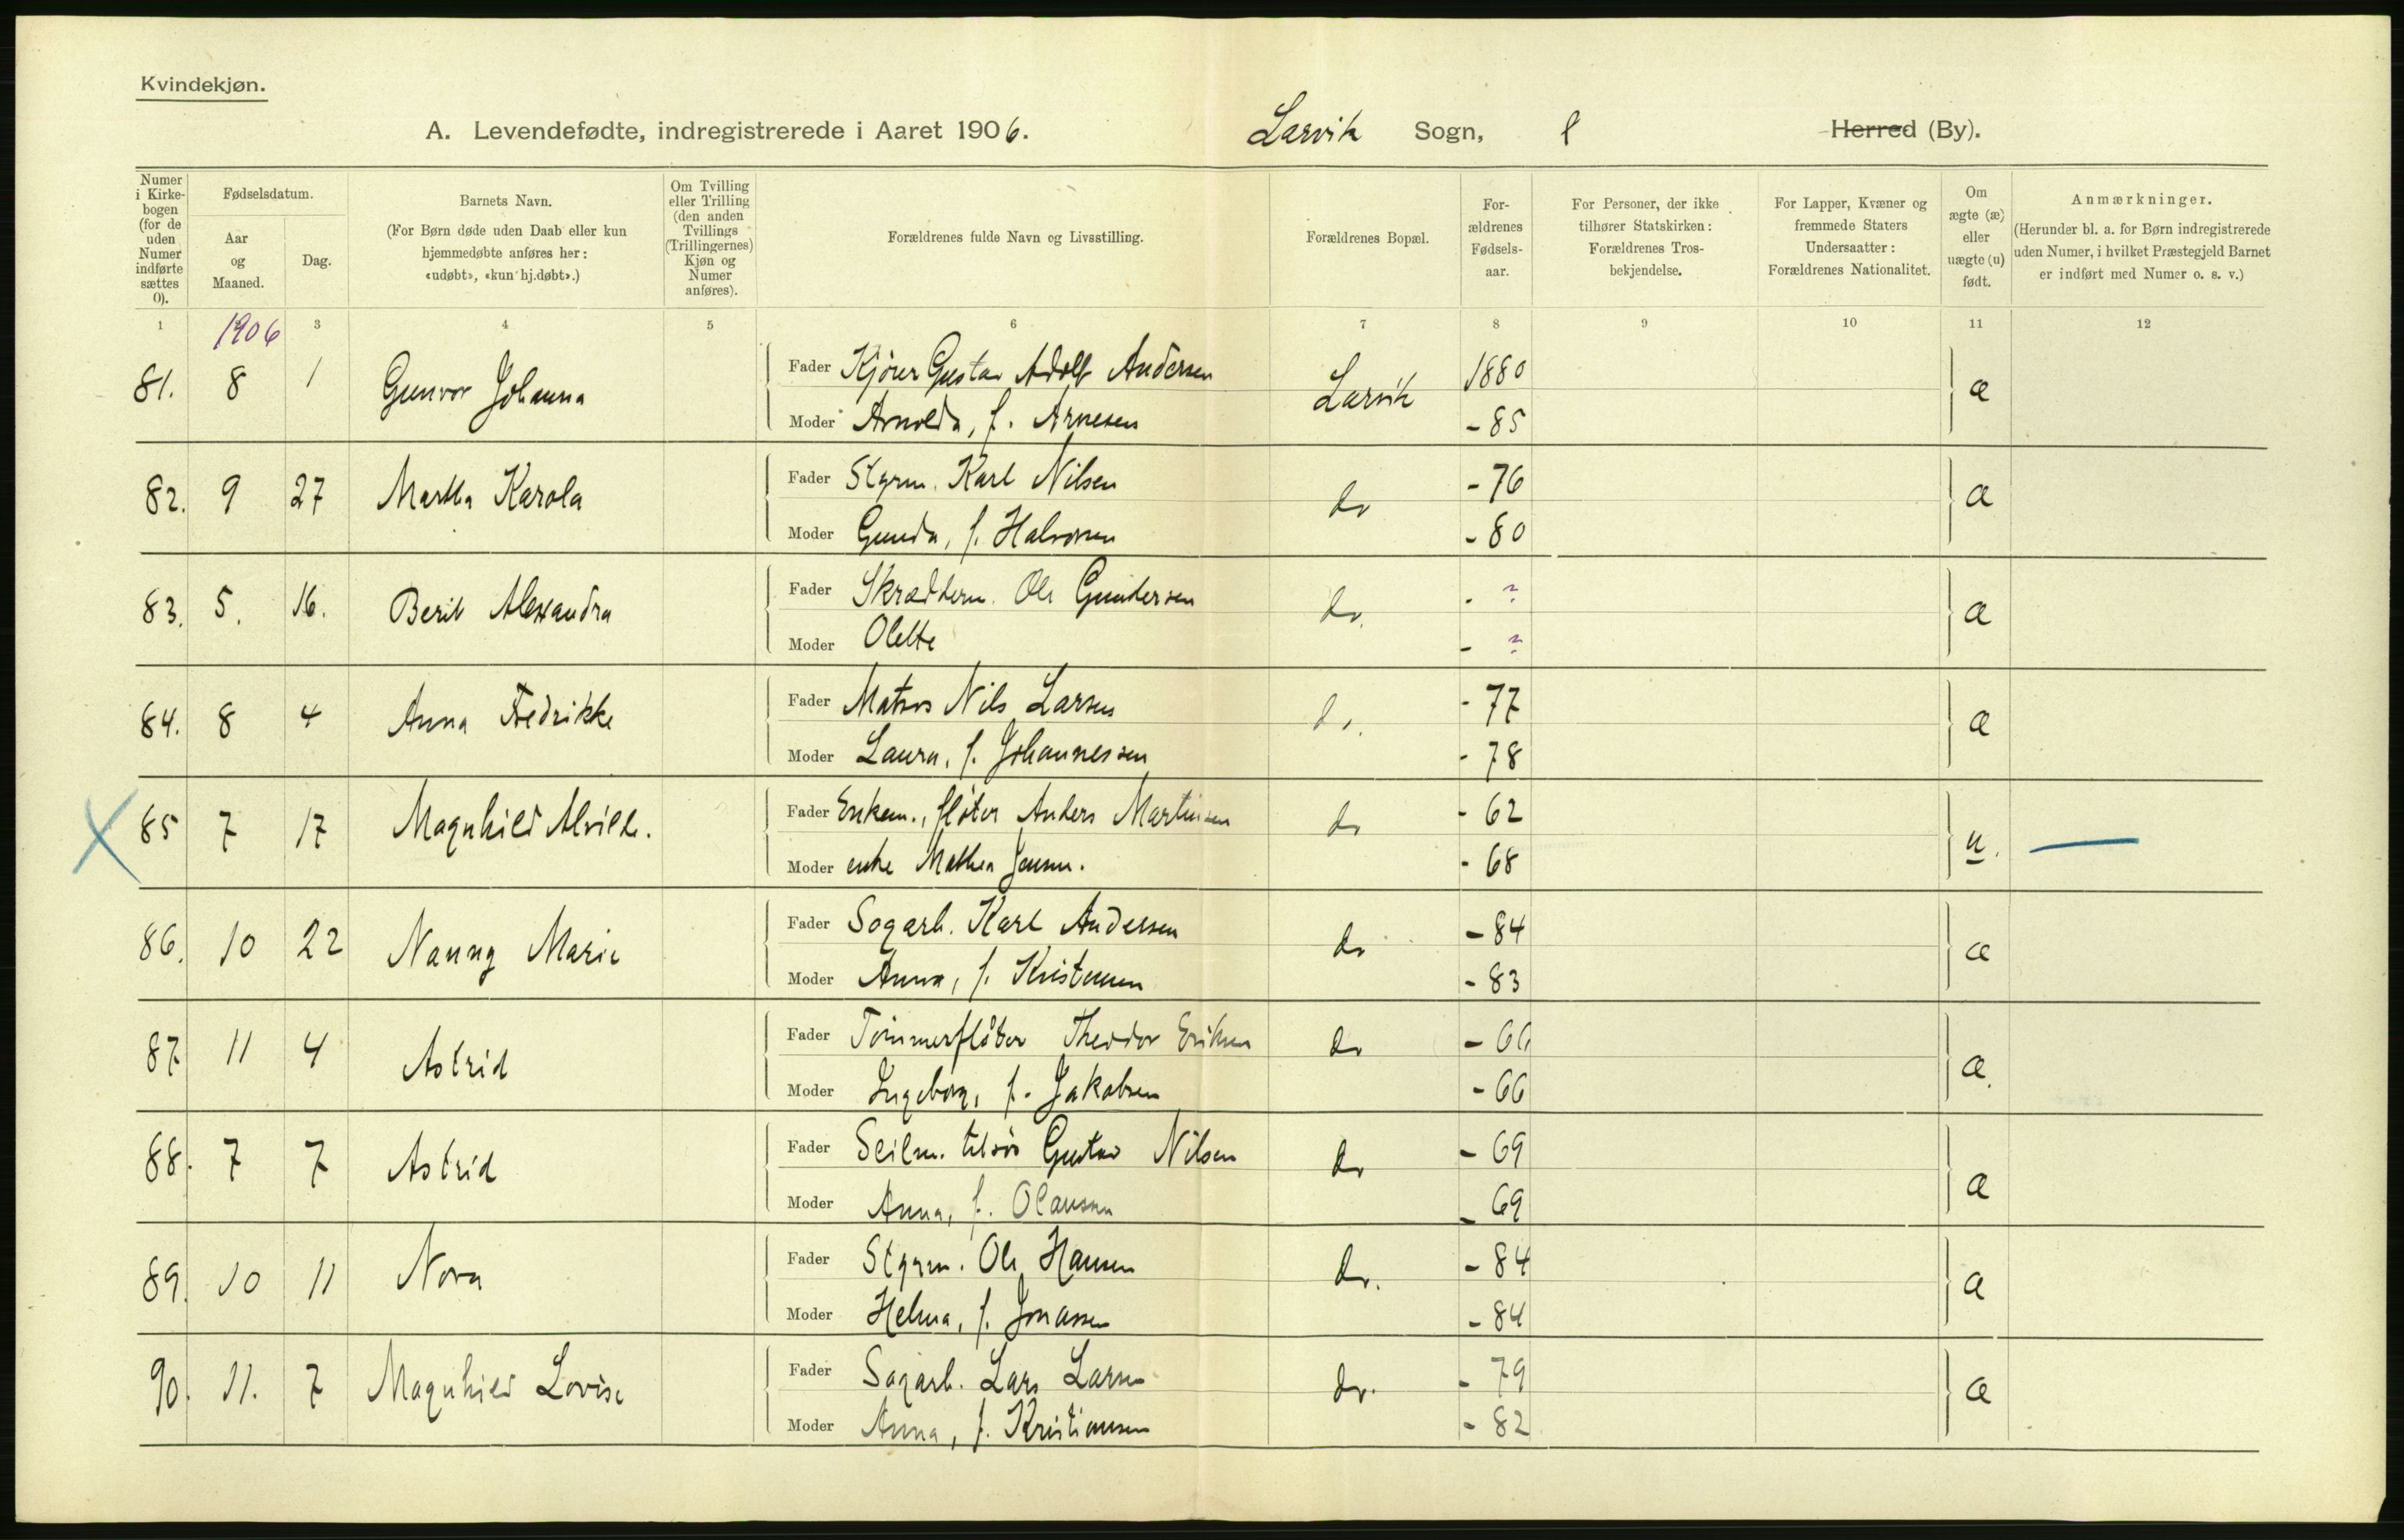 Kvindekjøn.
A. Levendefødte, indregistrerede i Aaret 1906. Larvik Sogn, Herred (By).
Numer i Kirkebogen (for de uden Numer indførte sættes 0).
Fødselsdatum.
Aar og Maaned.
Dag.
Barnets Navn.
(For Børn døde uden Daab eller kun hjemmedøbte anføres her: «udøbt», «kun hj.døbt».)
Om Tvilling eller Trilling (den anden Tvillings (Trillingernes) Kjøn og Numer anføres).
Forældrenes fulde Navn og Livsstilling.
Forældrenes Bopæl.
Forældrenes Fødselsaar.
For Personer, der ikke tilhører Statskirken: Forældrenes Trosbekjendelse.
For Lapper, Kvæner og fremmede Staters Undersaatter: Forældrenes Nationalitet.
Om ægte (æ) eller uægte (u) født.
Anmærkninger.
(Herunder bl. a. for Børn indregistrerede uden Numer, i hvilket Præstegjeld Barnet er indført med Numer o. s. v.)
1 1906 3 4 5 6 7 8 9 10 11 12
81. 8 1 Gunvor Johanna Fader Kjører Gustav Adolf Andersen Larvik 1880 æ
Moder Arnolda, f. Arnesen - 85
82. 9 27 Martha Karola Fader Styrm. Karl Nilsen do - 76 æ
Moder Gunda, f. Halvorsen - 80
83. 5. 16. Berit Alexandra Fader Skrædderm. Ole Gundersen do. - ? æ
Moder Olette - ?
84. 8 4 Anna Fredrikke Fader Matros Nils Larsen do. - 77 æ
Moder Laura, f. Johannessen - 78
85 7 17 Magnhild Alvilde. Fader Enkem., fløter Anders Martinsen do - 62 u.
Moder enke Mathea Jensen. - 68
86. 10 22 Nanny Marie Fader Sagarb. Karl Andersen do - 84 æ
Moder Anna, f. Kristensen - 83
87 11 4 Astrid Fader Tømmerfløter Theodor Eriksen do - 66 æ.
Moder Ingeborg, f. Jakobsen - 66
88. 7 7 Astrid Fader Seilm. tilsjøs Gustav Nilsen do - 69 æ
Moder Anna, f. Olaussen - 69
89. 10 11 Nora Fader Styrm. Ole Hansen do. - 84 æ
Moder Helma, f. Jonassen - 84
90. 11. 7 Magnhild Lovise Fader Sagarb. Lars Larsen do. - 79 æ
Moder Anna, f. Kristiansen - 82